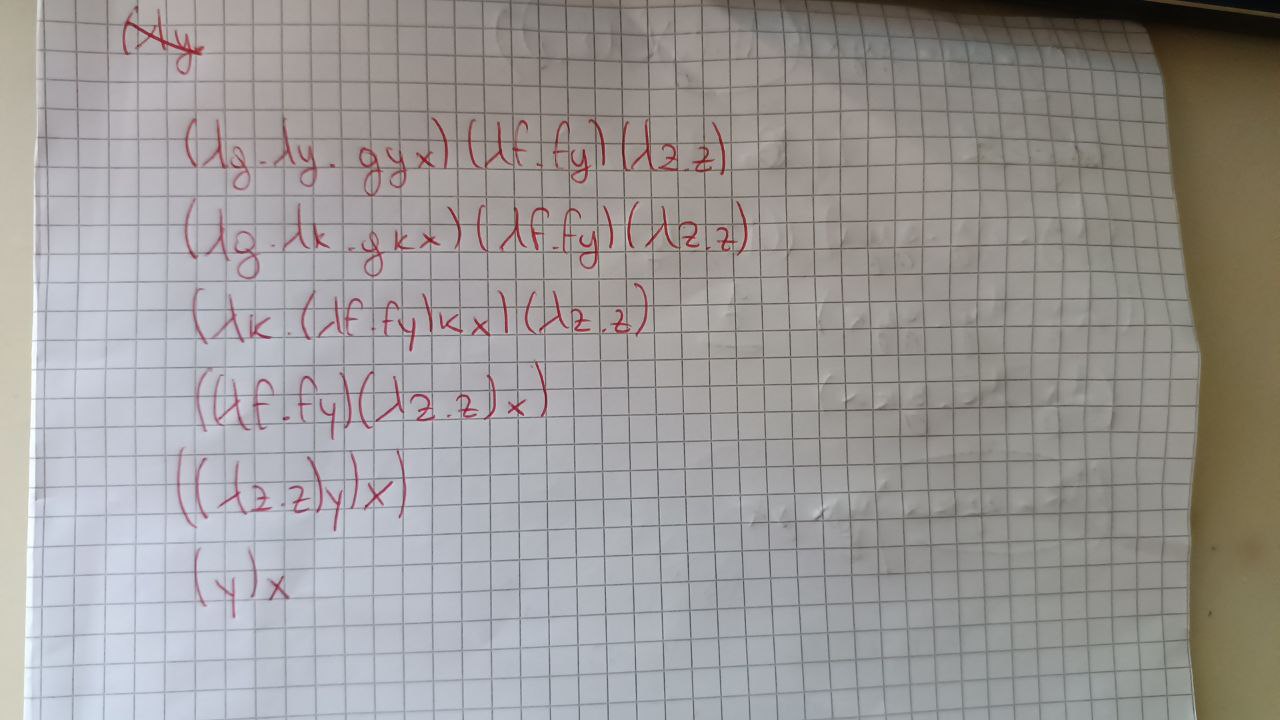 (λy
(λg.λy. gyx)(λf.fy)(λz.z)
(λg.λk.gkx)(λf.fy)(λz.z)
(λk.(λf.fy)kx)(λz.z)
((λf.fy)(λz.z)x)
((λz.z)y)x)
(y)x